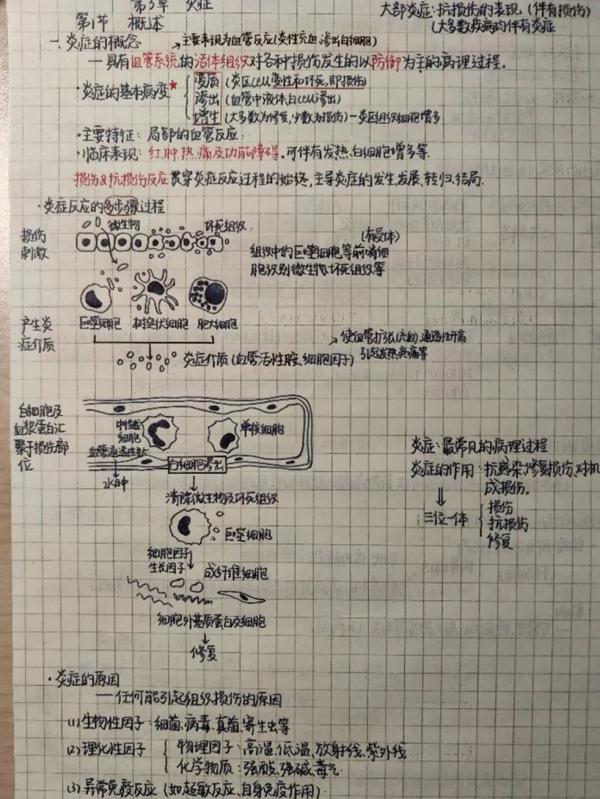 第5章 炎症
第1节 概述
大部炎症:抗损伤的表现(伴有损伤)
(大多数疾病均伴有炎症
一.炎症的概念
主要表现为血管反应(炎性充血,渗出白细胞)
—具有血管系统的活体组织对各种损伤发生的以防御为主的病理过程.
·炎症的基本病变
变质(炎区cell变性和坏死,即损伤)
渗出(血管中液体,白cell渗出)
增生(大多数为修复,少数为损伤)—炎区组织细胞增多
·主要特征:局部的血管反应
·临床表现:红,肿,热,痛及功能障碍.可伴有发热,白细胞增多等.
损伤&抗损伤反应贯穿炎症反应过程的始终,主导炎症的发生,发展,转归,结局.
·炎症反应的多步骤过程
微生物 坏死组织
损伤
刺激
(有受体)
组织中的巨噬细胞等前哨细
胞识别微生物、坏死组织等
巨噬细胞 树突状细胞 肥大细胞
产生炎
症介质
使血管扩张(充血),通透性升高
引起发热疼痛等
炎症介质(血管活性胺,细胞因子)
白细胞及
血浆蛋白汇
聚于损伤部
位
中性粒
细胞
单核细胞
白细胞渗出
水肿
清除微生物及坏死组织
巨噬细胞
细胞因子
生长因子
成纤维细胞
细胞外基质蛋白及细胞
修复
炎症:最常见的病理过程
炎症的作用:抗感染,修复损伤,对机
成损伤.
三位一体
损伤
抗损伤
修复
·炎症的原因
—任何能引起组织损伤的原因
(1)生物性因子:细菌,病毒,真菌,寄生虫等
(2)理化性因子
物理因子:高温,低温,放射线,紫外线
化学物质:强酸,强碱,毒气
(3)异常免疫反应(如超敏反应、自身免疫作用)